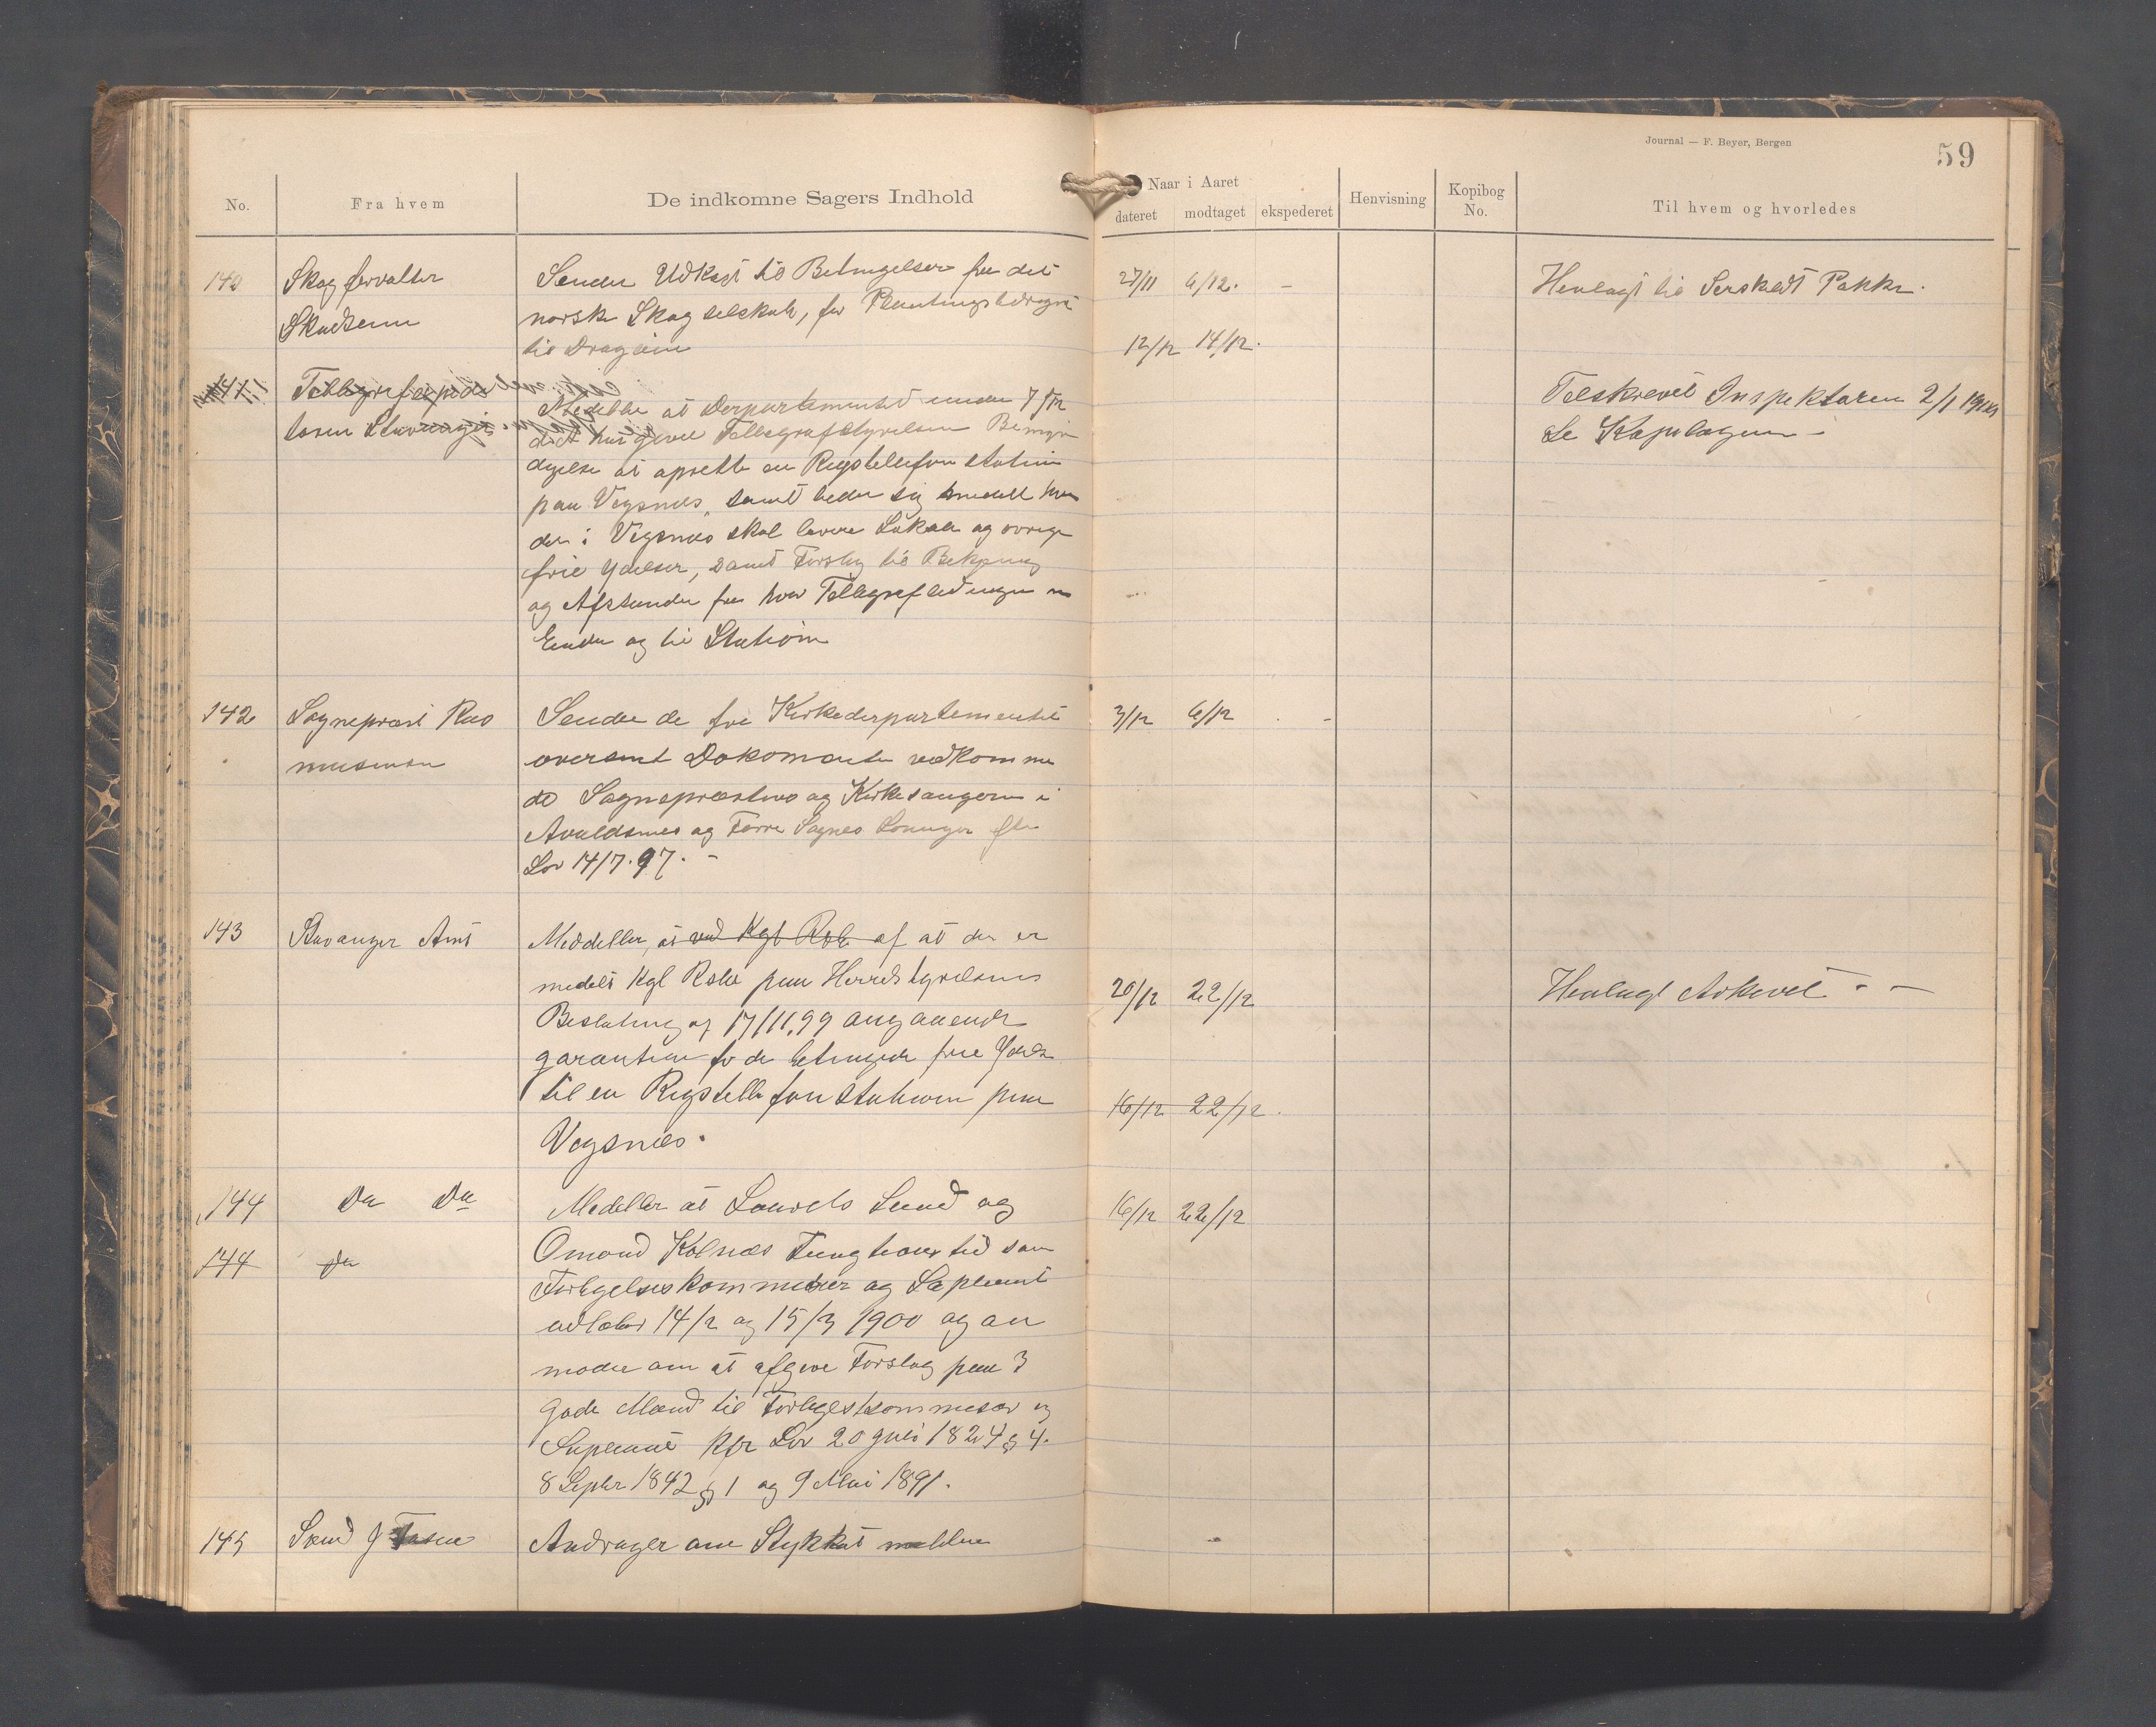 Journal — F. Beyer, Bergen
59
No.
Fra hvem
De indkomne Sagers Indhold
Naar i Aaret
dateret
modtaget
ekspederet
Henvisning
Kopibog
No.
Til hvem og hvorledes
140
Skogforvalter
Sender Udkast til Betingelser fra det
norske Skogselskab, for Plantningsbidraget
til
27/11 6/12. -
Henlagt til Serskelt Pakke.
12/12 14/12.
141
Tellegrafinspek
toren Stavanger
Medeller at Derpartementet under 7/12
d. A har givet Tellegrafstyrelsen Bemyn
digelse at oprette en Rigstellefon station
paa Vigsnes, samt beder sig medelt hvem
der i Vigsnes skal levere Lokale og øvrige
frie Ydelser, samt Forslag til
og Afstanden fra hvor Tellegrafledningen
Ender og til Station
Tilskrevet Inspektøren 2/1 1900
Se Kopibogen -
142
Sogneprest Ras
mussen
Sender de fra Kirkederpartementet
oversent Dokomenter vedkommen
de Sogneprestens og Kirkesangeren i
Avaldsnes og Torve Sognes Lønninger efter
Lov 14/7. 97. -
3/12 6/12 . -
143
Stavanger Amt
Meddeller, at ved Kgl Rsl af at der er
medelt Kgl Rslu paa Herredstyrelsens
Beslutning af 17/11.99 angaaende
garantien for de betingede frie Ydelser
til en Rigstellefon station paa
Vigsnes.
20/12 22/12
Henlagt Arkevet - -
16/12 22/12.
144
Do Do
Medeller at Lauvels Lund og
Omond Kolnes Fungtions tid som
Forligelseskommisær og Supleant
udløber 14/2 og 15/3 1900 og an
moder om at afgive Forslag paa 3
gode Mænd til Forligelseskommisær og
Supleant Kfr Lov 20 Juli 1824 § 4.
8 Septbr 1842 § 1 og 9 Mai 1891.
16/12 22/12
144
Do
145
Svend J
Andrager om